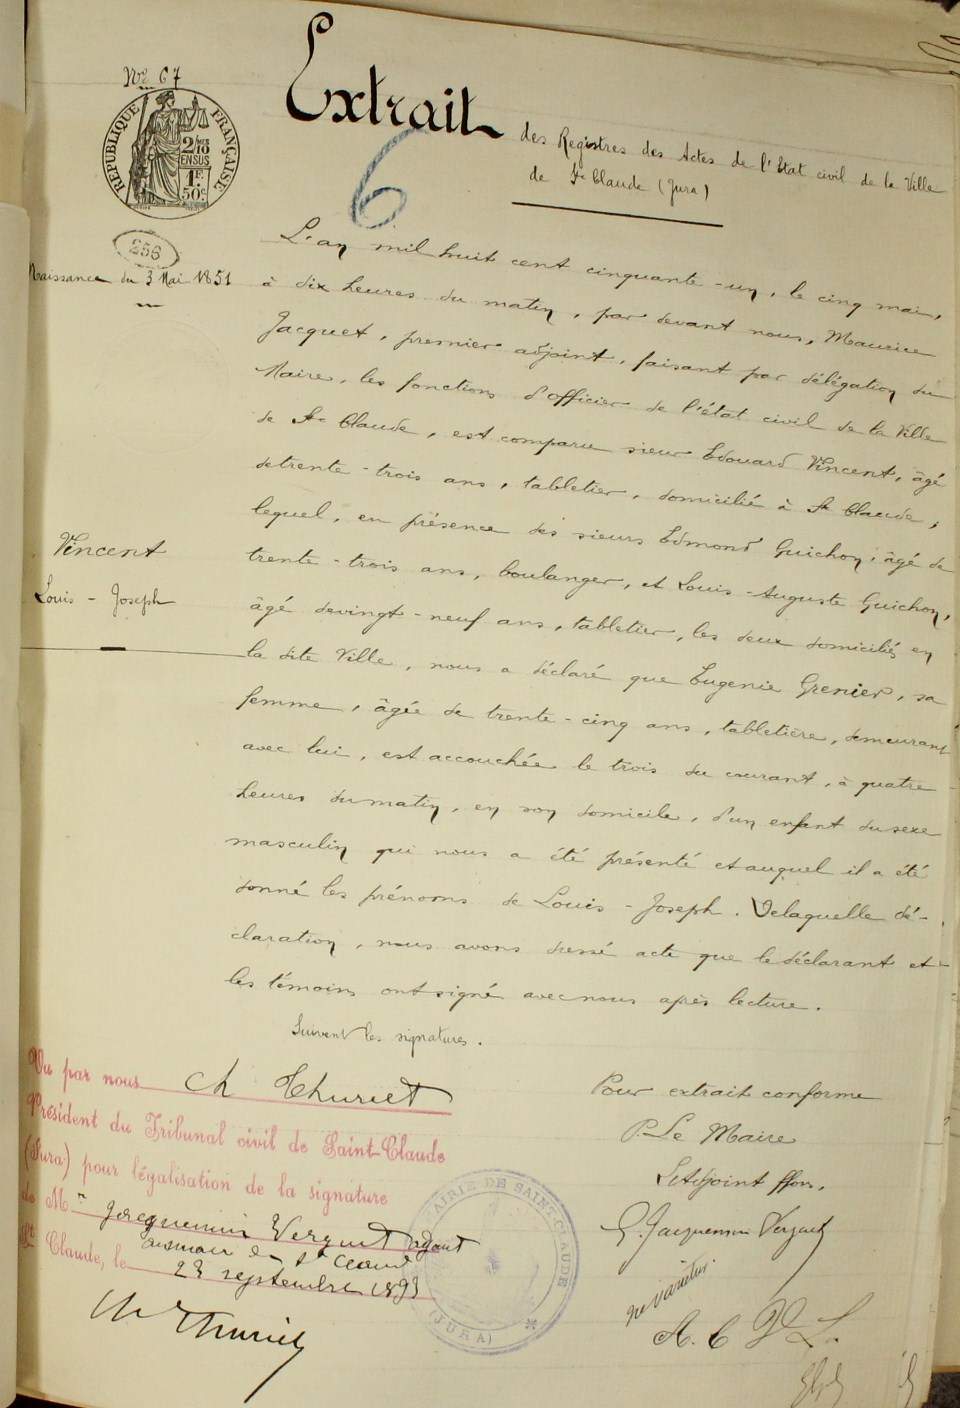 No 67
RÉPUBLIQUE FRANÇAISE
2/10 EN SUS
1F.50c.
Extrait
des Registres des Actes de l'Etat civil de la Ville
de St Claude (Jura)
6
256
Naissance du 3 Mai 1851
L'an mil huit cent cinquante-un, le cinq mai,
à dix heures du matin, par devant nous, Maurice
Jacquet, premier adjoint, faisant par délégation du
Maire, les fonctions d'officier de l'état civil de la Ville
de St Claude, est comparu sieur Edouard Vincent, âgé
de trente-trois ans, tabletier, domicilié à St Claude,
lequel, en présence des sieurs Edmond Guichon, âgé de
trente-trois ans, boulanger, et Louis-Auguste Guichon,
âgé de vingt-neuf ans, tabletier, les deux domiciliés en
la dite Ville, nous a déclaré que Eugenie Grenier, sa
femme, âgée de trente-cinq ans, tabletière, demeurant
avec lui, est accouchée le trois du courant, à quatre
heures du matin, en son domicile, d'un enfant du sexe
masculin qui nous a été présenté et auquel il a été
donné les prénoms de Louis-Joseph. De laquelle dé-
claration, nous avons dressé acte que le déclarant et
les témoins ont signé avec nous après lecture.
Suivent les signatures.
Vincent
Louis-Joseph
Vu par nous Ch Thuriet
Président du Tribunal civil de Saint-Claude
(Jura) pour légalisation de la signature
de Mr Jacquemin Verguet adjoint
au maire de St Claude
St Claude, le 23 septembre 1893
Ch Thuriet
Pour extrait conforme
P. Le Maire
L'adjoint ffons.
G. Jacquemin Verguet
MAIRIE DE SAINT-CLAUDE
(JURA)
ne varietur.
A. C P L.